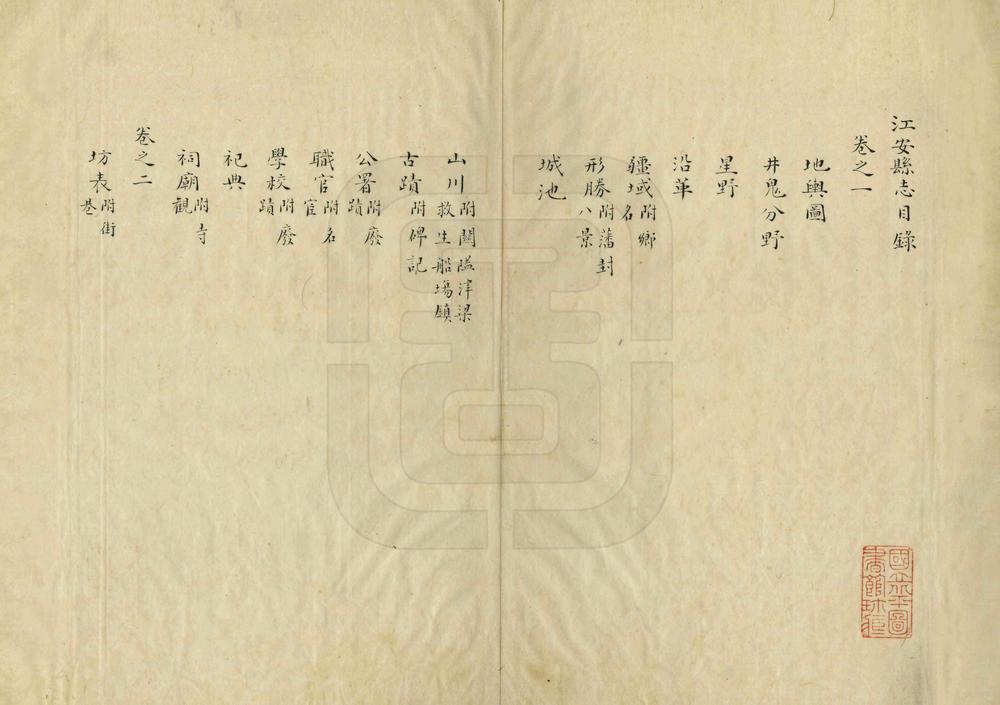 江安縣志目錄
卷之一
地輿圖
井鬼分野
星野
沿革
疆域附鄉名
形勝附藩封八景
城池
山川附關隘津梁救生船場鎮
古蹟附碑記
公署附廢蹟
職官附名宦
學校附廢蹟
祀典
祠廟附寺觀
卷之二
坊表附街巷
國立中央圖書館珍藏